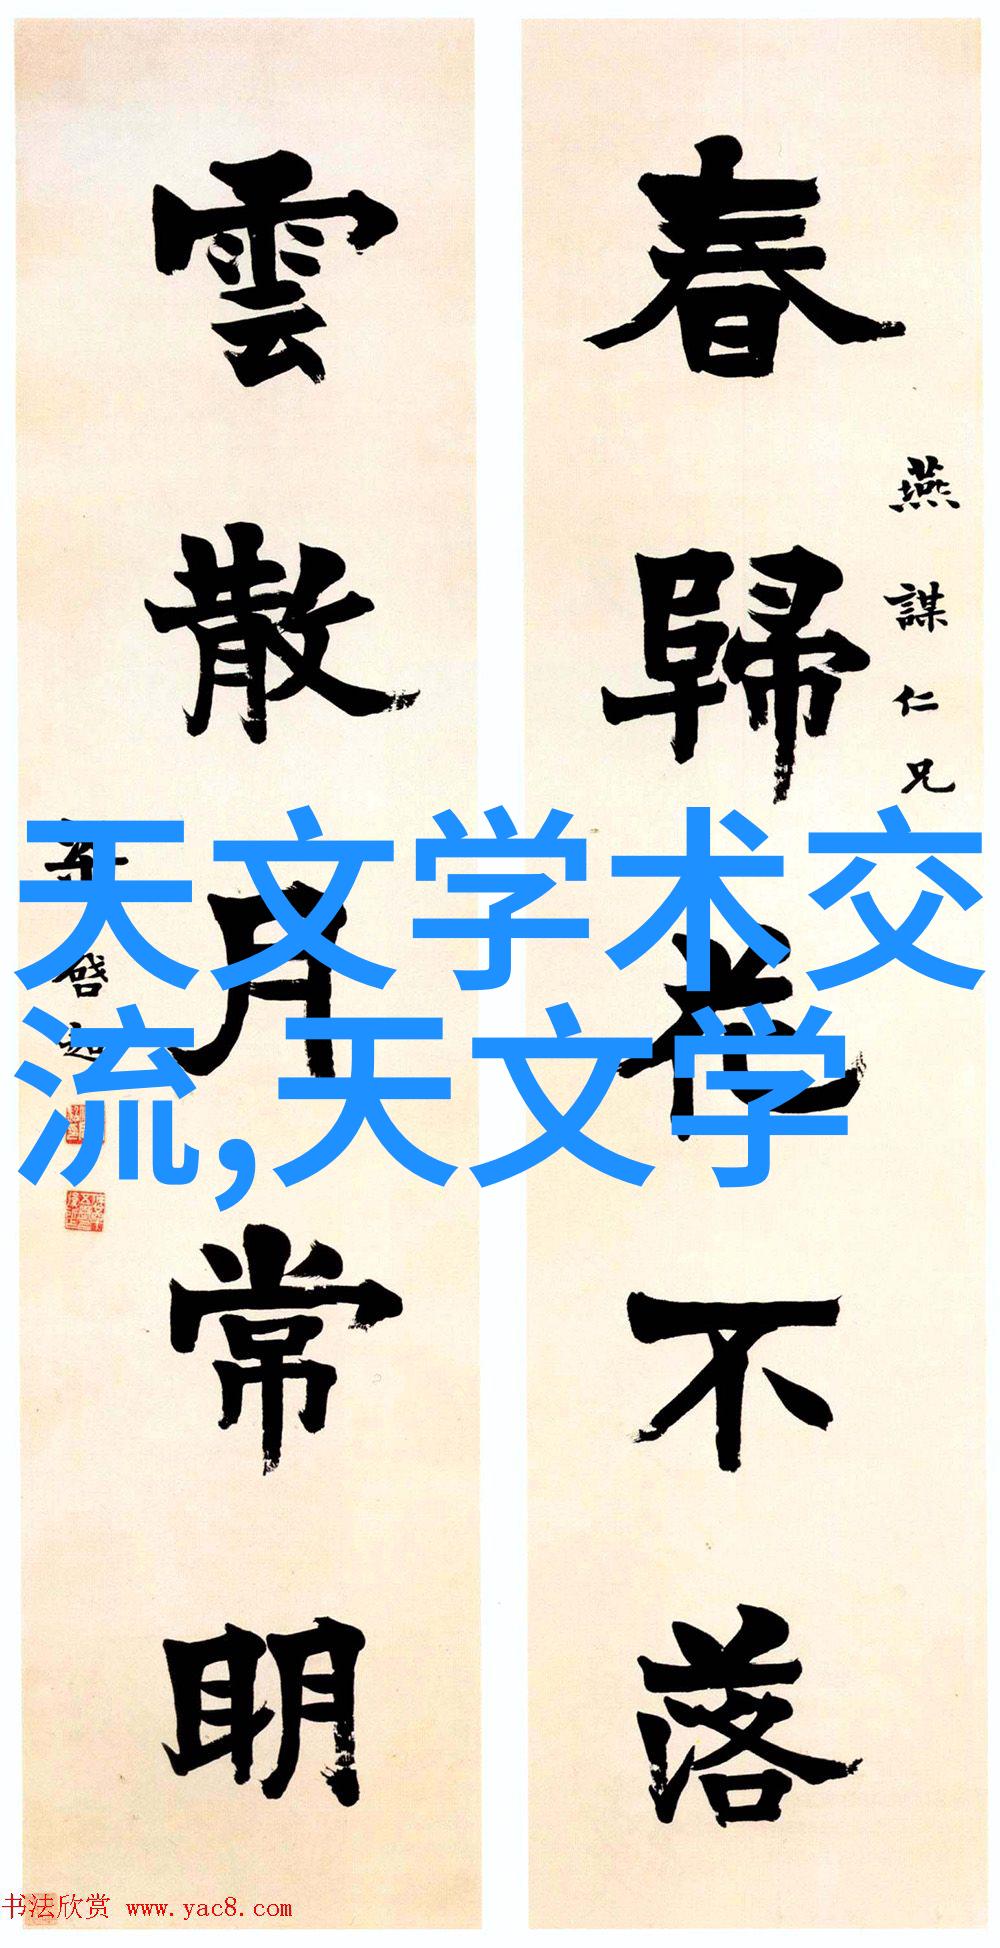 春歸花不落
燕謀仁兄
雲散月常明
梁啓超
天文学术交
流,天文学
书法欣赏 www.yac8.com